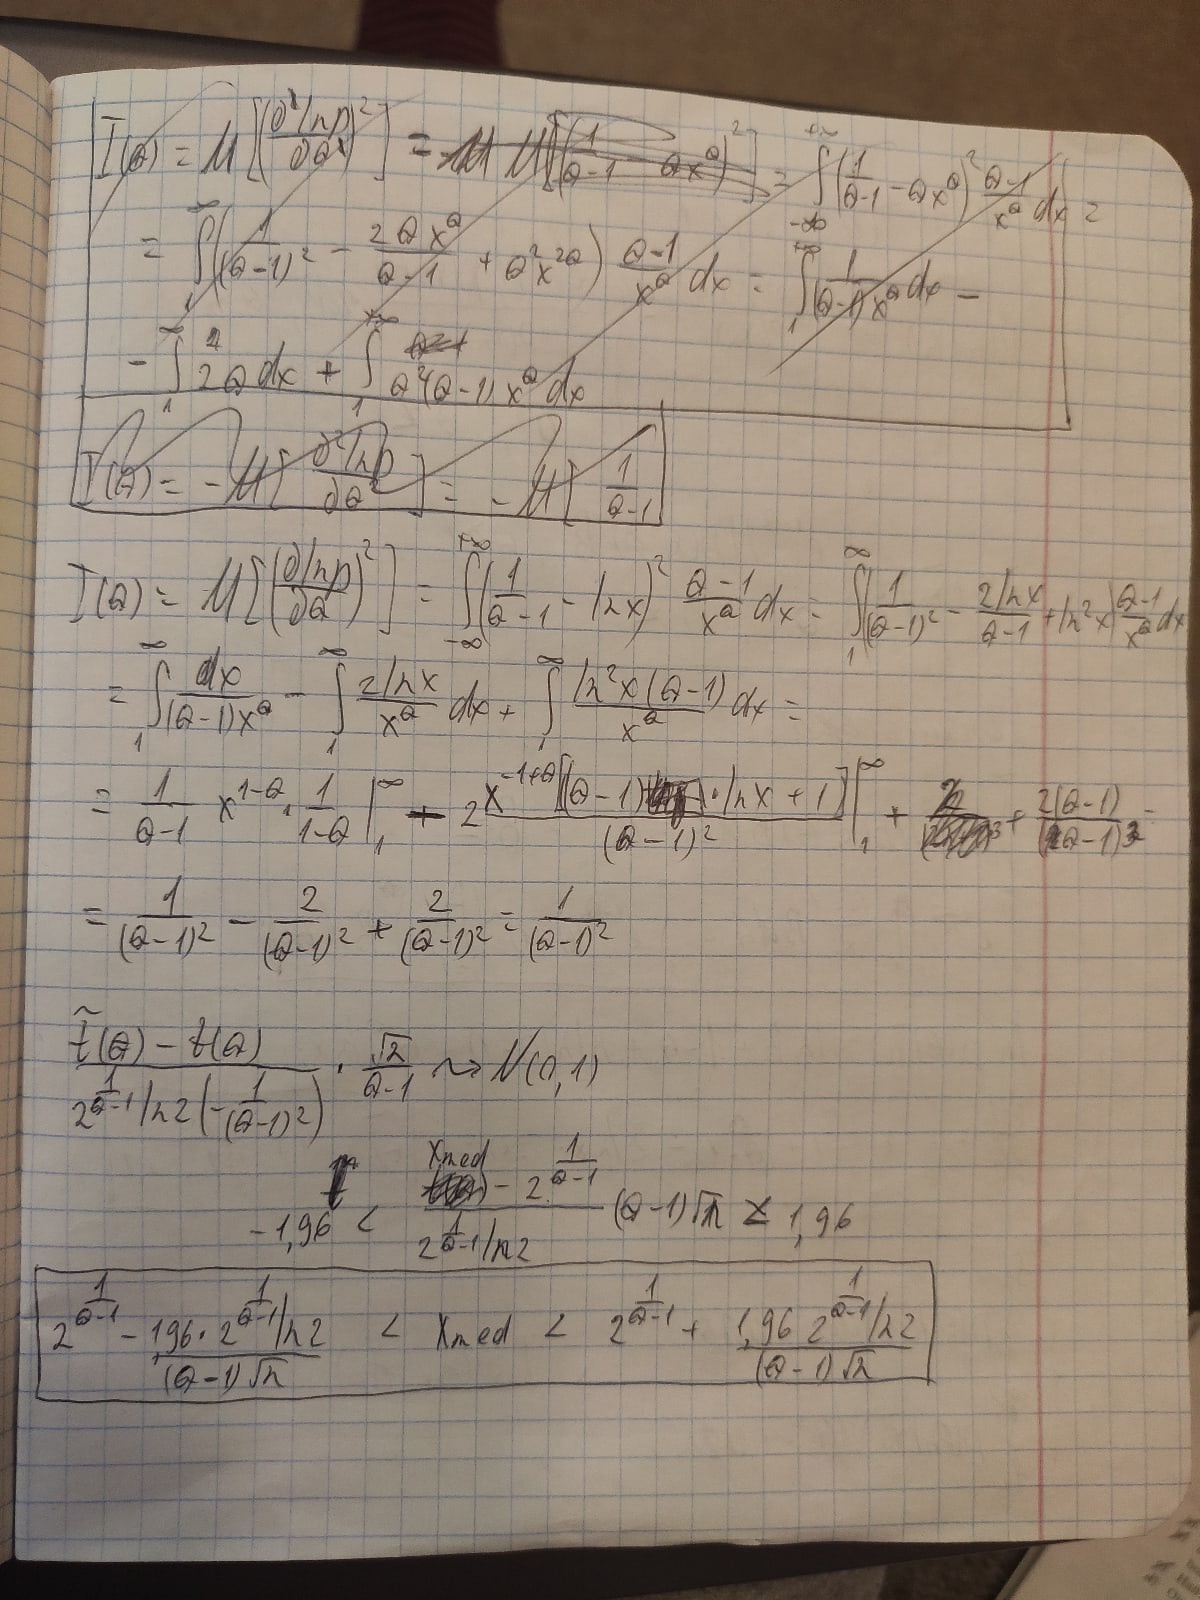 I(θ) = M[(∂ ln p/∂θ)²] = M M[(1/(θ-1) - θx^θ)²] = ∫_{-∞}^{+∞} (1/(θ-1) - θx^θ)² (θ-1)/x^θ dx =
= ∫_1^∞ (1/(θ-1)² - 2θx^θ/(θ-1) + θ²x^{2θ}) (θ-1)/x^θ dx = ∫_1^{+∞} 1/((θ-1)x^θ) dx -
- ∫_1^∞ 2θ dx + ∫_1^{+∞} θ²(θ-1) x^θ dx
I(θ) = -M[∂² ln p/∂θ²] = -M[1/(θ-1)
I(θ) = M[(∂ ln p/∂θ)²] = ∫_{-∞}^{+∞} (1/(θ-1) - ln x)² (θ-1)/x^θ dx = ∫_1^∞ (1/(θ-1)² - 2 ln x/(θ-1) + ln² x) (θ-1)/x^θ dx
= ∫_1^∞ dx/((θ-1)x^θ) - ∫_1^∞ 2 ln x/x^θ dx + ∫_1^∞ ln² x (θ-1)/x^θ dx =
= 1/(θ-1) x^{1-θ} · 1/(1-θ) |_1^∞ + 2 x^{-1+θ}[(θ-1) · ln x + 1]/(θ-1)² |_1^∞ + + 2(θ-1)/(θ-1)³ =
= 1/(θ-1)² - 2/(θ-1)² + 2/(θ-1)² = 1/(θ-1)²
(t̃(θ) - t(θ))/(2^{1/(θ-1)} ln 2 (-1/(θ-1)²)) · √n/(θ-1) ⇝ N(0,1)
-1,96 < (x_med - 2^{1/(θ-1)})/(2^{1/(θ-1)} ln 2) (θ-1)√n < 1,96
2^{1/(θ-1)} - 1,96 · 2^{1/(θ-1)} ln 2/((θ-1)√n) < x_med < 2^{1/(θ-1)} + 1,96 2^{1/(θ-1)} ln 2/((θ-1)√n)